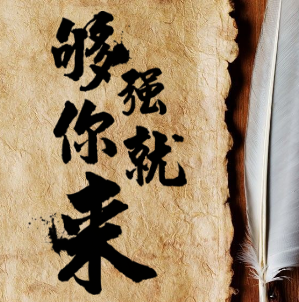 够强
你就
来